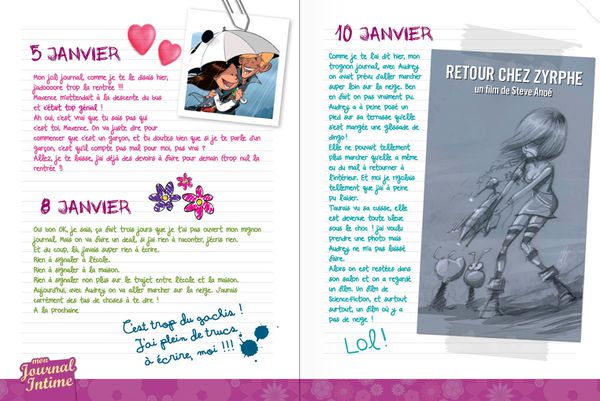 5 JANVIER
Mon joli journal, comme je te le disais hier,
j'adooooore trop la rentrée !!!
Maxence m'attendait à la descente du bus
et c'était top génial !
Ah oui, c'est vrai que tu sais pas qui
c'est toi, Maxence. On va juste dire pour
commencer que c'est un garçon, et tu doutes bien que si je te parle d'un
garçon, c'est qu'il compte pas mal pour moi, pas vrai ?
Allez, je te laisse, j'ai déjà des devoirs à faire pour demain (trop nul la
rentrée !)
8 JANVIER
Oui bon OK, je sais, ça fait trois jours que je t'ai pas ouvert mon mignon
journal. Mais on va faire un deal, si j'ai rien à raconter, j'écris rien.
Et du coup, là, j'avais super rien à écrire.
Rien à signaler à l'école.
Rien à signaler à la maison.
Rien à signaler non plus sur le trajet entre l'école et la maison.
Aujourd'hui, avec Audrey on va aller marcher sur la neige. J'aurais
carrément des tas de choses à te dire !
A la prochaine
C'est trop du gachis !
J'ai plein de trucs
à écrire, moi !!!
mon
Journal
Intime
10 JANVIER
Comme je te l'ai dit hier, mon
trognon journal, avec Audrey
on avait prévu d'aller marcher
super loin sur la neige. Ben
en fait on pas vraiment pu.
Audrey a à peine posé un
pied sur sa terrasse qu'elle
s'est mangée une glissade de
dingo !
Elle ne pouvait tellement
plus marcher qu'elle a même
eu du mal à retourner à
l'intérieur. Et moi je rigolais
tellement que j'ai à peine
pu l'aider.
T'aurais vu sa cuisse, elle
est devenue toute bleue
sous le choc ! J'ai voulu
prendre une photo mais
Audrey ne m'a pas laissé
faire.
Alors on est restées dans
son salon et on a regardé
un film. Un film de
Science-fiction, et surtout
surtout, un film où y a
pas de neige !
Lol !
RETOUR CHEZ ZYRPHE
un film de Steve Anoé